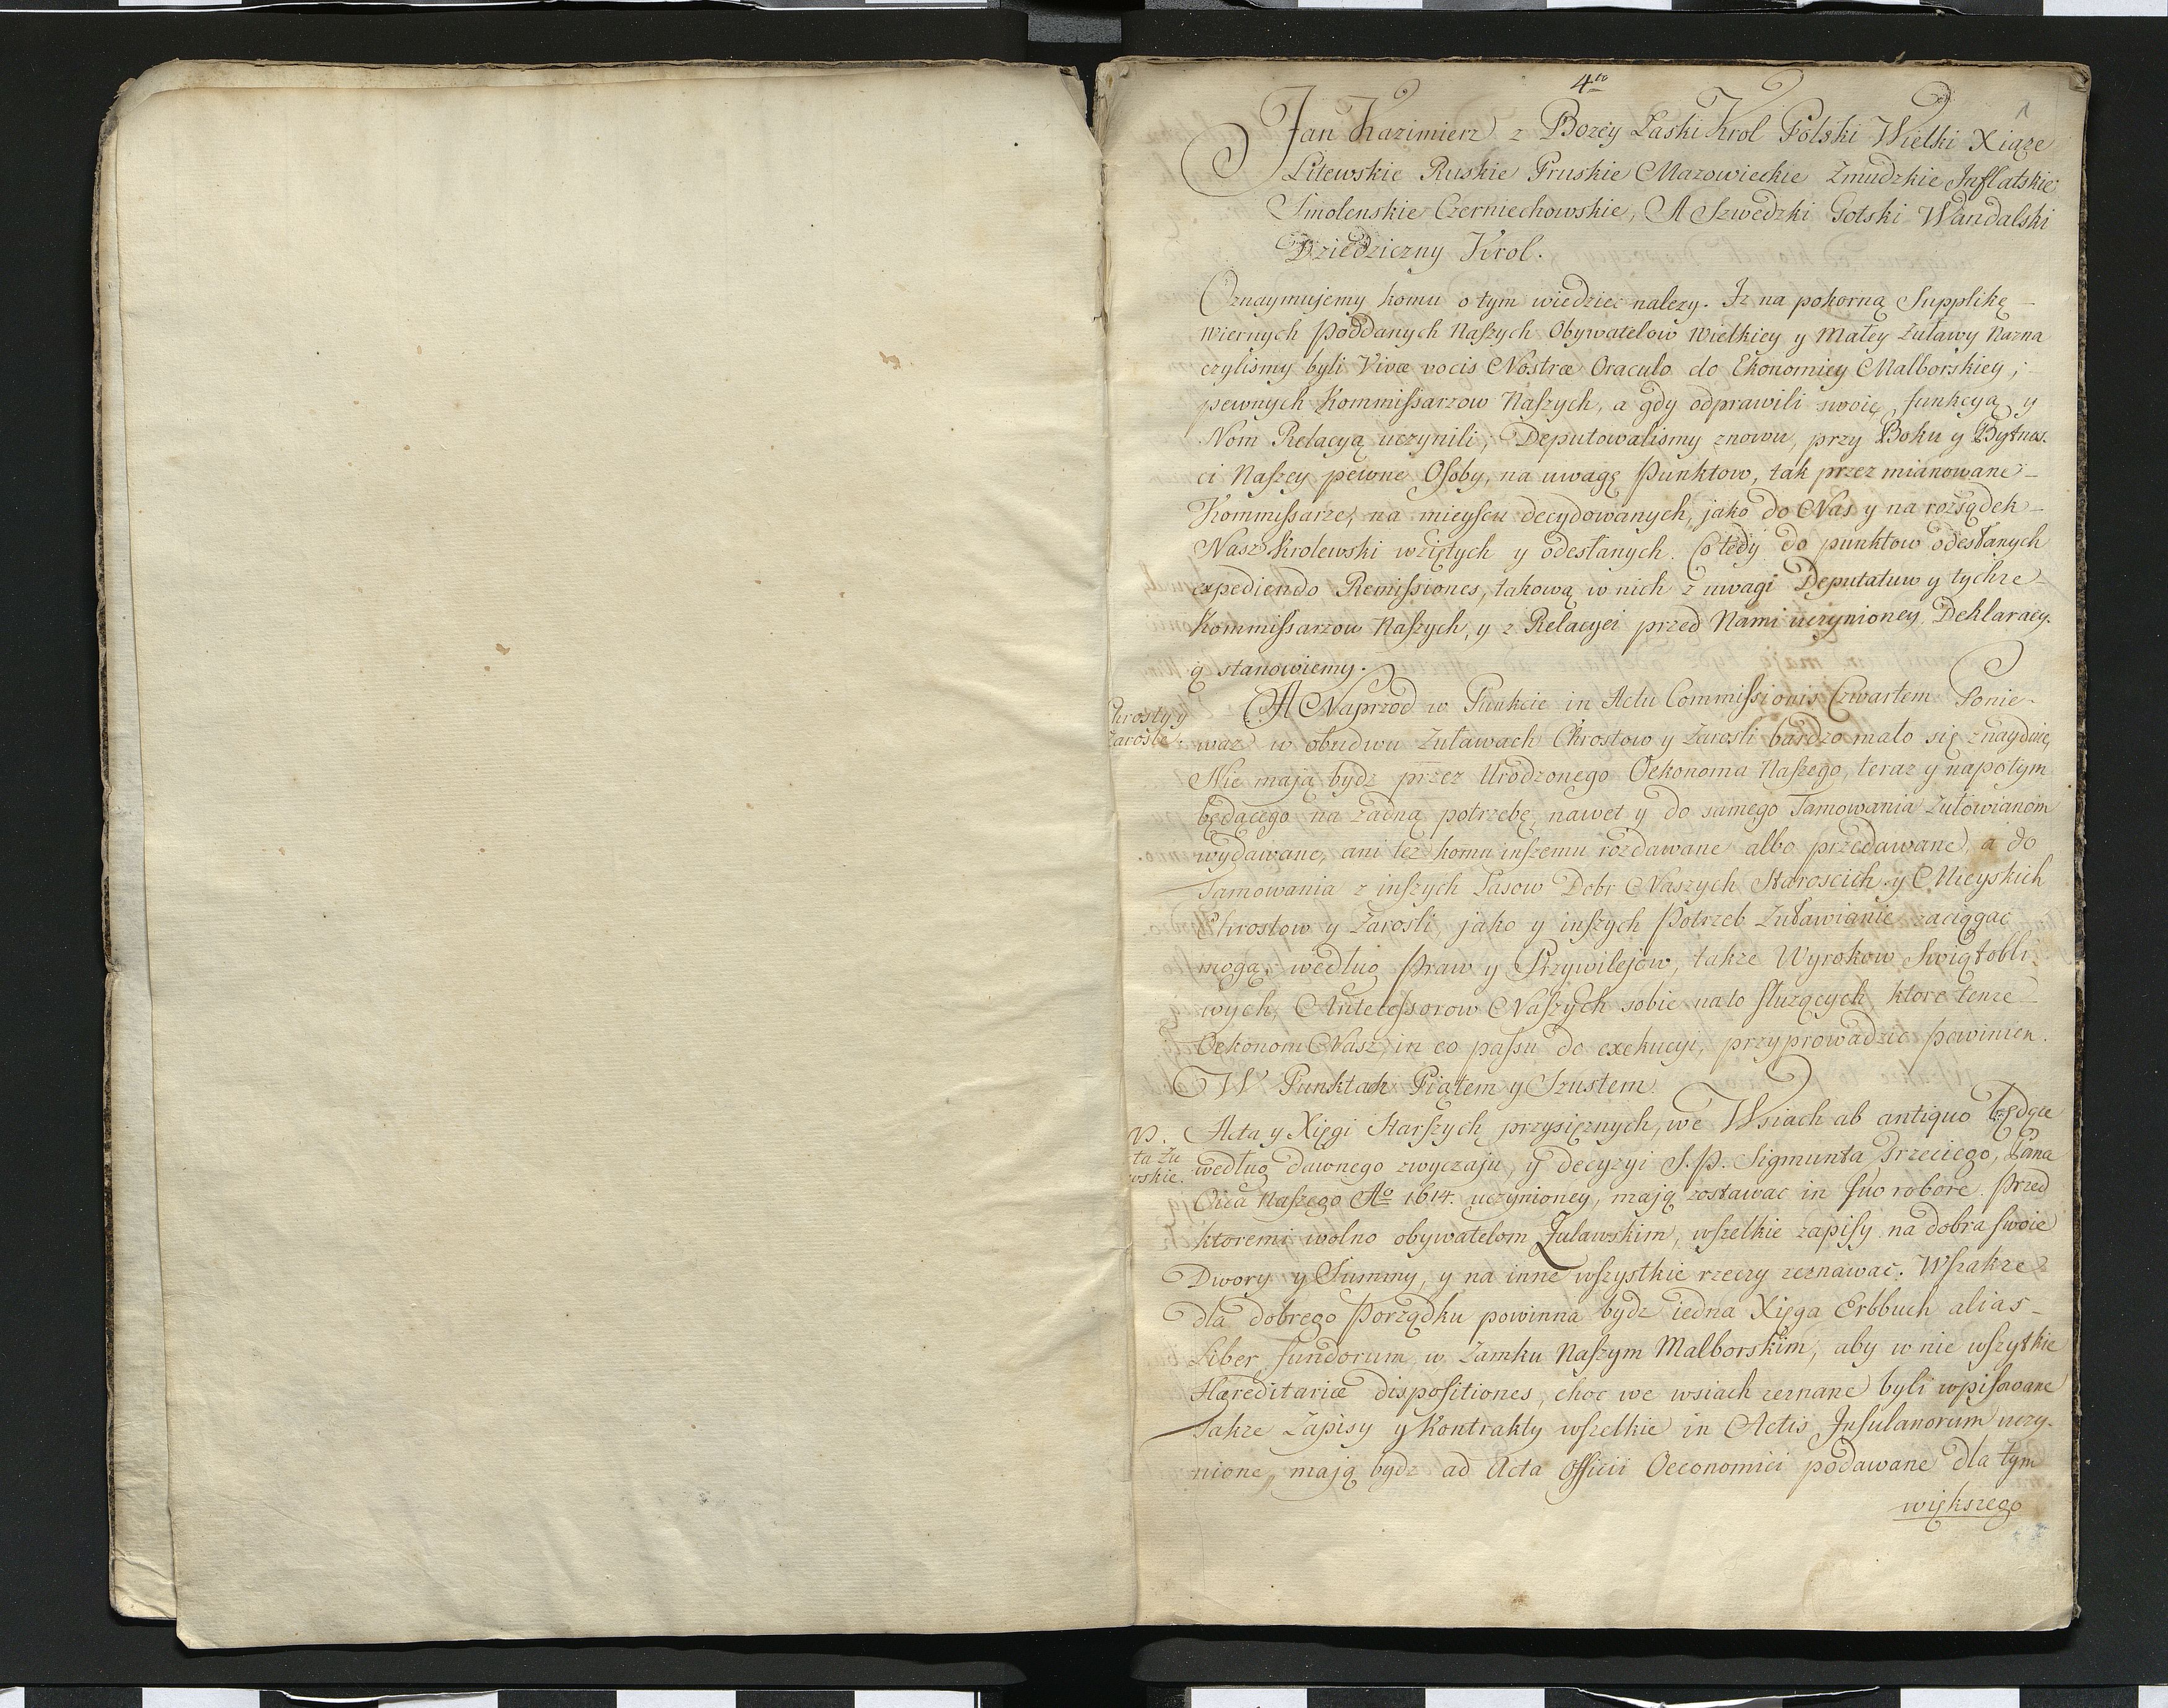 4to
1
Jan Kazimierz z Bozey Łaski Krol Polski Wielki Xiąze
Litewskie Ruskie Pruskie Mazowieckie Zmudzkie Inflatskie
Smolenskie Czerniechowskie, A Szwedzki Gotski Wandalski
Dziedziczny Krol.
Oznaymujemy komu o tym wiedziec nalezy. Iz na pokorną Supplikę
wiernych Poddanych Naszych Obywatelow Wielkiey y Małey Zuławy Nazna
czylismy byli Vivæ vocis Nostræ Oraculo do Ekonomiey Malborskiey,
pewnych Kommissarzow Naszych, a gdy odprawili swoię funkcyą y
Nom Relacyą uczynili, Deputowalismy znowu, przy Boku y Bytnos.
ci Naszey pewne Osoby, na uwagę Punktow, tak przez mianowane
Kommissarze, na mieyscu decydowanych, jako do Nas y na rozsądek
Nasz Krolewski wziętych y odesłanych. Co tedy do punktow odesłanych
expediendo Remissiones, takową w nich z uwagi Deputatuw y tychze
Kommissarzow Naszych, y z Relacyei przed Nami uczynioney Deklaracy.
ą stanowiemy.
Chrosty y
Zarosle.
A Naprzod w Punkcie in Actu Commissionis Czwartem Ponie-
waz w obudwu Zuławach Chrostow y Zarosli bardzo mało się znayduie,
Nie mają bydz przez Urodzonego Oekonoma Naszego, teraz y napotym
będącego na zadną potrzebę, nawet y do samego Tamowania Zułowianom
wydawane, ani tez komu inszemu rozdawane albo przedawane, a do
Tamowania z inszych Lasow Dobr Naszych Staroscich y Mieyskich
Chrostow y Zarosli jako y inszych Potrzeb Zuławianie zaciągac
mogą, według Praw y Przywilejow, takze Wyrokow Swiątobli
wych, Antecessorow Naszych sobie na to służących ktore tenze
Oekonom Nasz, in eo passu do exekucyi, przyprowadzic powinien.
W Punktach Piątem y Szustem
Acta y Xięgi Starszych przysięznych, we Wsiach ab antiquo będące
według dawnego zwyczaju, y decyzyi S. P. Sigmunta Trzeciego, Pana
Oyca Naszego Ao 1614. uczynioney, mają zostawac in suo robore. Przed
ktoremi wolno obywatelom Zulawskim, wszelkie zapisy na dobra swoie
Dwory y Summy, y na inne wszystkie rzeczy zeznawac. Wszakze
dla dobrego Porządku powinna bydz iedna Xięga Erbbuch alias
Liber fundorum w Zamku Naszym Malborskim, aby w nie wszytkie
Hæreditariæ dispositiones, choc we wsiach zeznane byli wpisowane
Takze Zapisy y Kontrakty wszelkie in Actis Insulanorum uczy-
nione, mają bydz ad Acta Officii Oeconomici podawane dla tym
większego